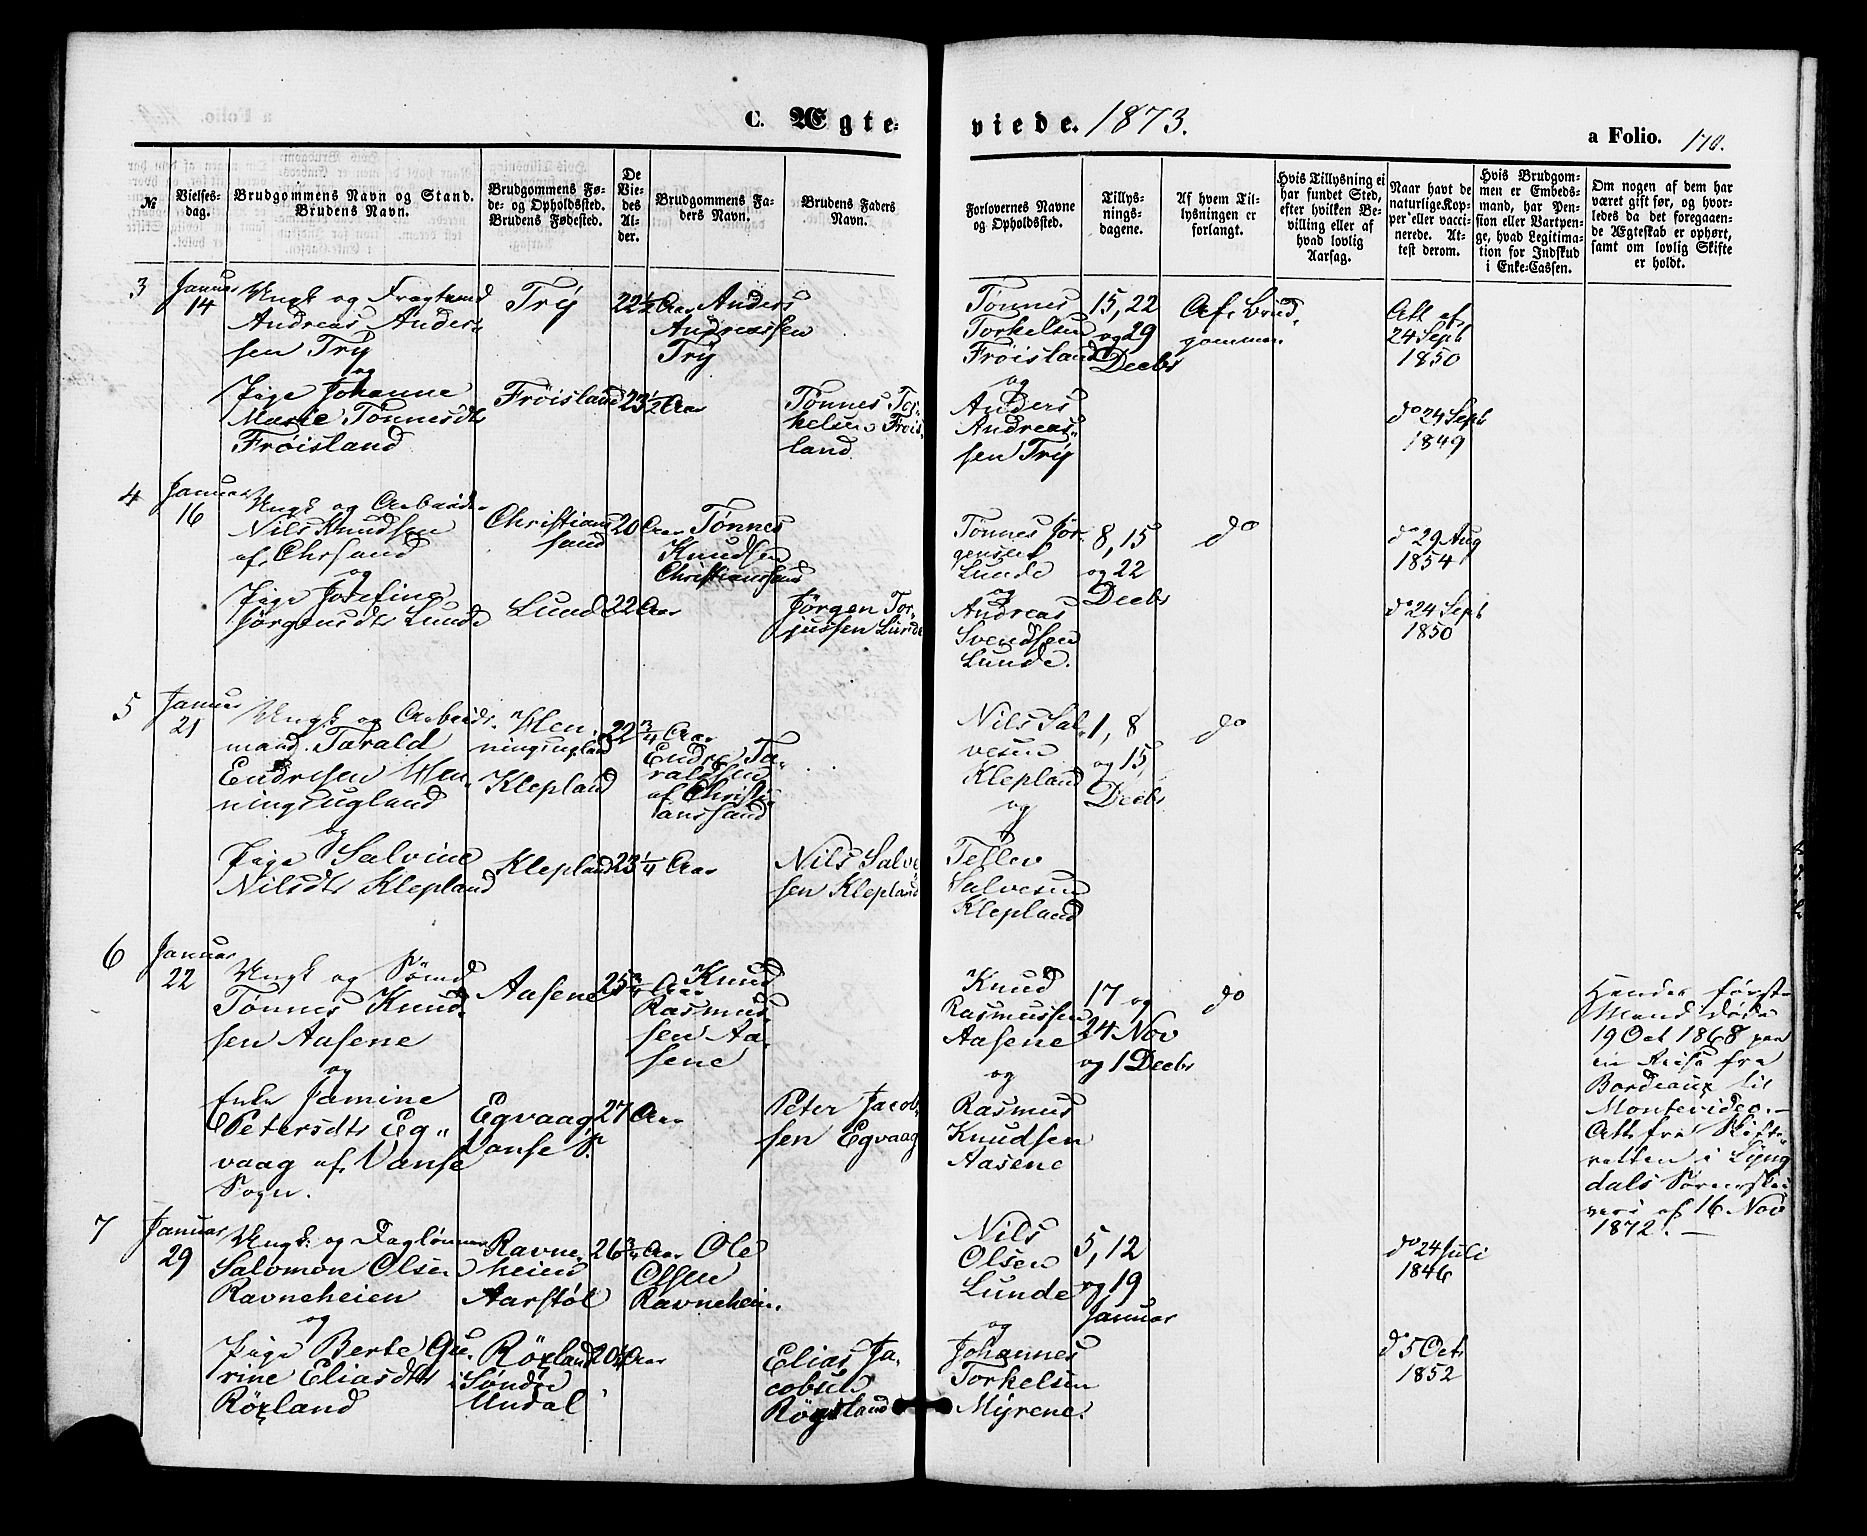 C. Ægteviede. 1873.
a Folio. 170.
№
Vielsesdag.
Brudgommens Navn og Stand.
Brudens Navn.
Brudgommens Føde- og Opholdssted.
Brudens Fødested.
De Viedes Alder.
Brudgommens Faders Navn.
Brudens Faders Navn.
Forlovernes Navne og Opholdssted.
Tillysningsdagene.
Af hvem Tillysningen er forlangt.
Hvis Tillysning ei har fundet Sted, efter hvilken Bevilling eller af hvad lovlig Aarsag.
Naar havt de naturlige Kopper eller vaccinerede. Attest derom.
Hvis Brudgommen er Embedsmand, har Pension eller Vartpenge, hvad Legitimation for Indskud i Enke-Cassen.
Om nogen af dem har været gift før, og hvorledes da det foregaaende Ægteskab er ophørt, samt om lovlig Skifte er holdt.
3
Januar
14
Ungk og Fragtmd
Andreas Anders
sen Try
og
Pige Johanne
Marie Tønnesdtr
Frøisland
Try
Frøisland
22½ Aar
23½ Aar
Anders
Andreassen
Try
Tønnes Tor-
kelsen Frøis-
land
Tønnes
Torkelsen
Frøisland
og
Anders
Andreas-
sen Try
15, 22
og 29
Decbr
Af Brud-
gommen
Att af
24 Sept
1850
do 24 Sept
1849
4
Januar
16
Ungk og Arbeidr
Nils Knudsen
af Chrsand
og
Pige Josefine
Jørgensdtr Lunde
Christians
sand
Lund
20 Aar
22 Aar
Tønnes
Knudsen
Christianssand
Jørgen Tor-
jussen Lunde
Tønnes Jør-
gensen
Lunde
og
Andreas
Svendsen
Lunde.
8, 15
og 22
Decbr
do
do 29 Aug
1854
do 24 Sept
1850
5
Januar
21
Ungk og Arbeids-
mand Tarald
Endresen Hen-
ningsugland
og
Pige Salvine
Nilsdtr Klepland
Hen-
ningsugland
Klepland
Klepland
22¾ Aar
23¼ Aar
Endre Ta-
raldsen
af Christi-
anssand
Nils Salve
sen Klepland
Nils Sal-
vesen
Klepland
og
Tellev
Salvesen
Klepland
1, 8
og 15
Decbr
do
6
Januar
22
Ungk og Sømd
Tønnes Knud-
sen Aasene
og
Enke Jamine
Petersdtr Eg-
vaag af Vanse
Sogn.
Aasene
Egvaag
Vanse S.
25¾ Aar
27 Aar
Knud
Rasmus-
sen Aa-
sene
Peter Jacob
sen Egvaag
Knud
Rasmussen
Aasene
og
Rasmus
Knudsen
Aasene
17 og
24 Nov
og 1 Decbr
do
Hendes første
Mand døde
19 Oct 1868 paa
en Reise fra
Bordeaux til
Montevideo. —
Att fra Skifte-
retten i Lyng
dals Sorenskri
veri af 16 Nov
1872. —
7
Januar
29
Ungk og Daglønner
Salomon Olsen
Ravneheien
og
Pige Berte Gu-
rine Eliasdtr
Røxland
Ravne-
heien
Aarstøl
Røxland
i Søndre
Undal
26¾ Aar
20¼ Aar
Ole
Olsen
Ravneheien
Elias Ja-
cobsen
Røgsland
Nils
Olsen
Lunde
og
Johannes
Torkelsen
Myrene.
5, 12
og 19
Januar
do 24 Juli
1846
do 5 Octr
1852